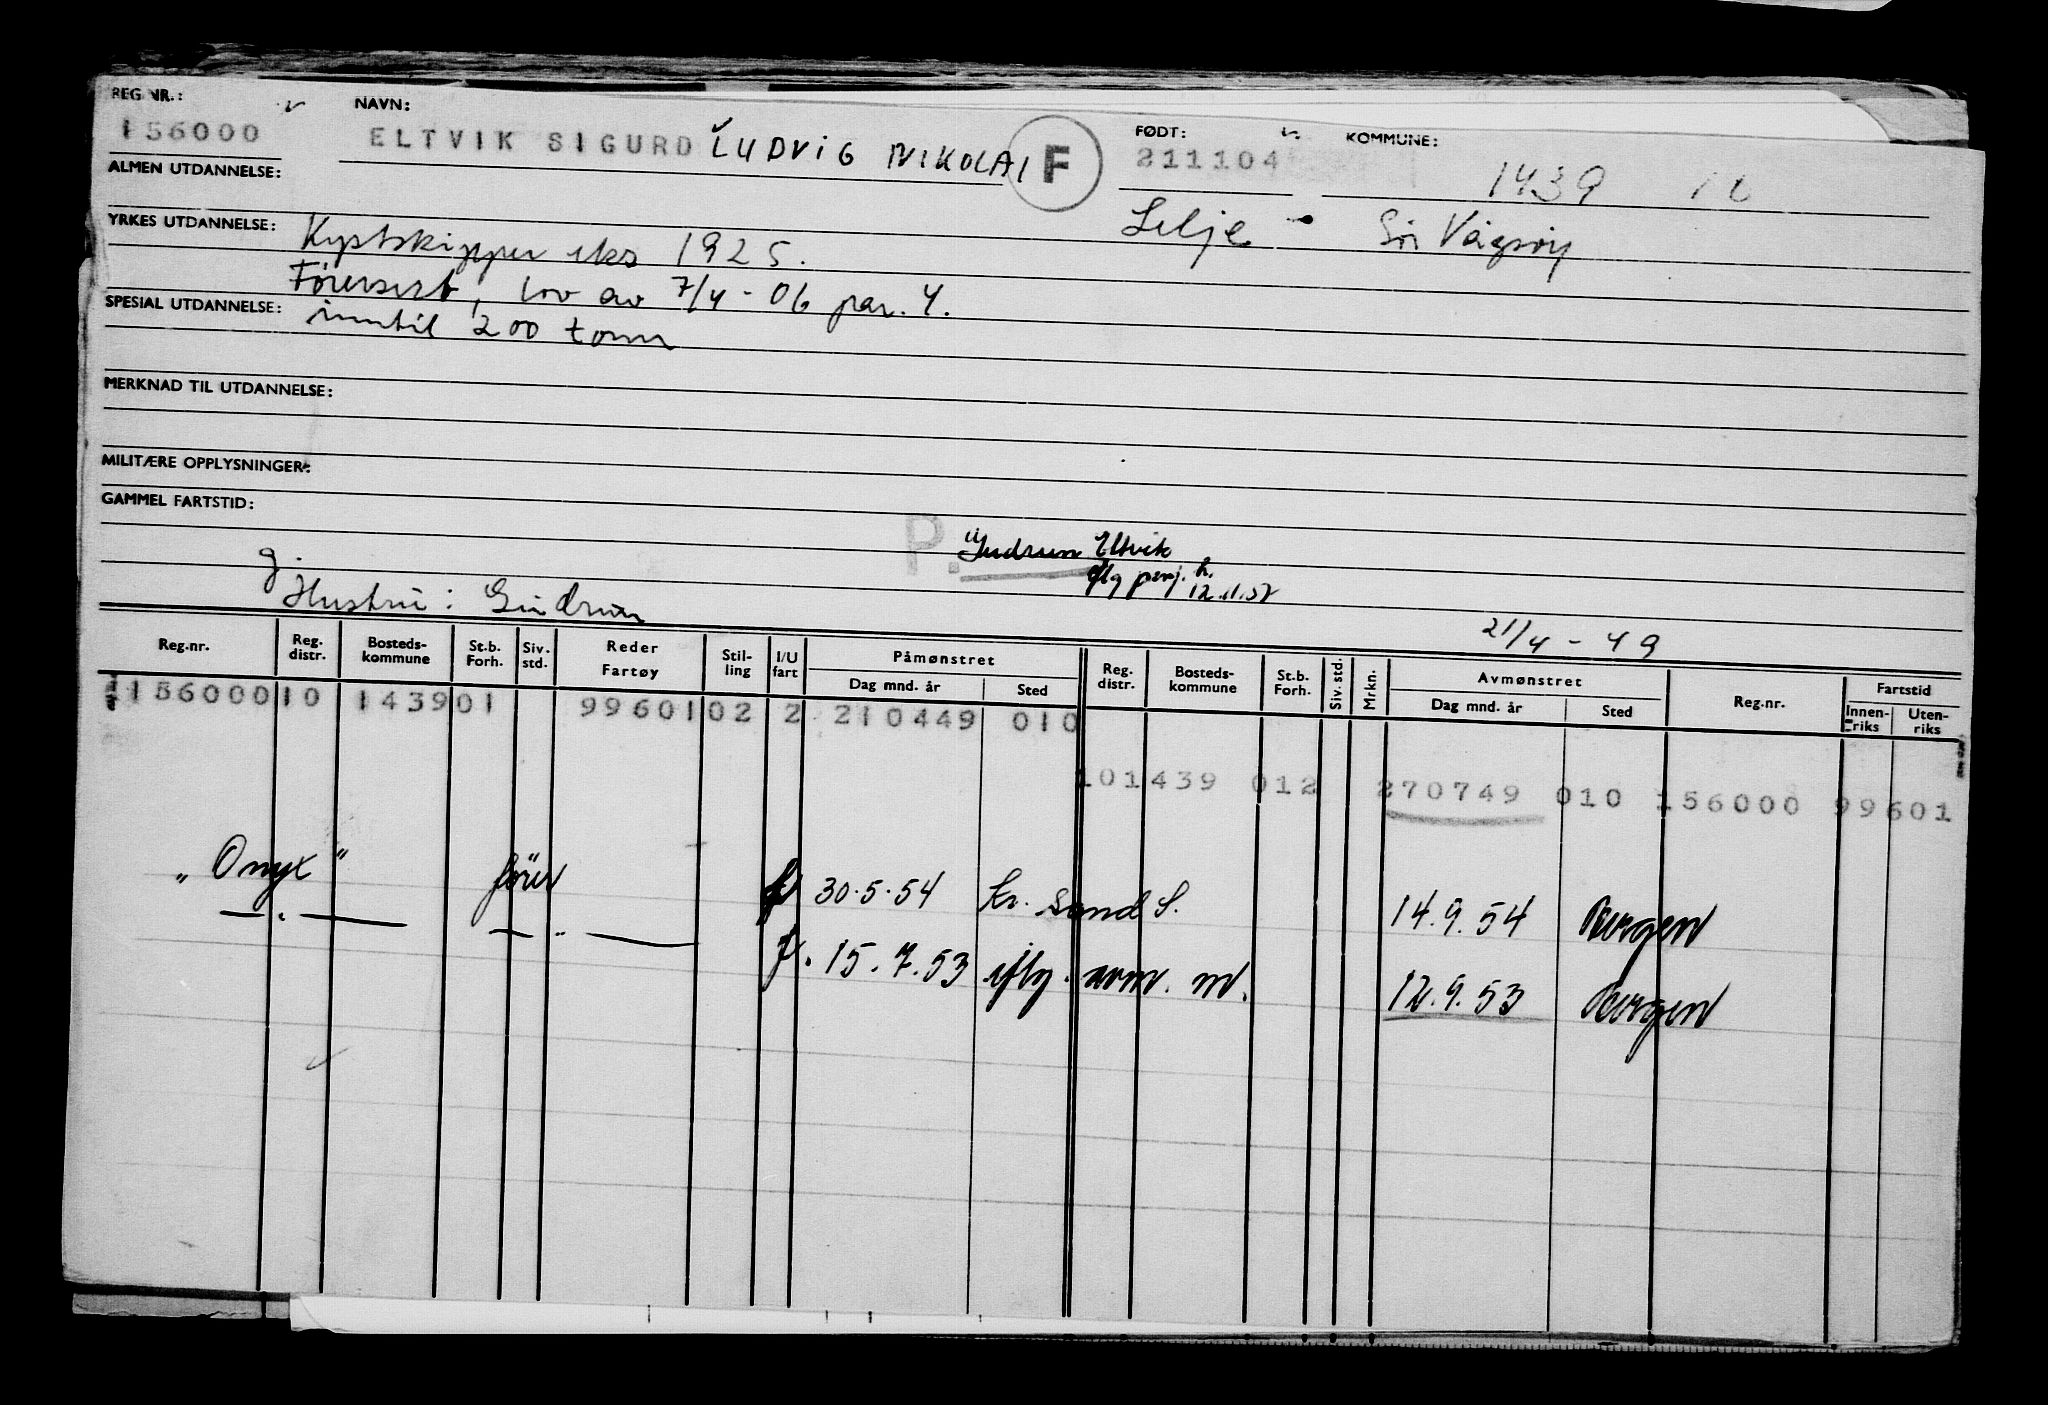 REG NR.: NAVN: FØDT: KOMMUNE:
156000 ELTVIK SIGURD LUDVIG NIKOLAI F 211104 1439
ALMEN UTDANNELSE:
Selje - Sör Vågsöy
YRKES UTDANNELSE: Kystskipper eks 1925.
Försert, lov av 7/4 - 06 par. 4.
SPESIAL UTDANNELSE: inntil 200 tonn
MERKNAD TIL UTDANNELSE:
MILITÆRE OPPLYSNINGER:
GAMMEL FARTSTID:
P. Gudrun Eltvik
iflg penj. k. 12.11.57
g.
Hustru: Gudrun
21/4 - 49
Reg.nr. Reg. distr. Bosteds-kommune St.b. Forh. Siv. std. Reder Fartøy Stil-ling I/U fart Påmønstret Dag mnd. år Sted Reg. distr. Bosteds-kommune St.b. Forh. Siv. std. Mrkn. Avmønstret Dag mnd. år Sted Reg.nr. Fartstid Innen-riks Uten-riks
156000 10 1439 01 99601 02 2 210449 010
10 1439 012 270749 010 156000 99601
"Onyx" förer f 30.5.54 Kr. sand S. 14.9.54 Bergen
— " — — " — f. 15.7.53 iflg. avm. m. 12.9.53 Bergen